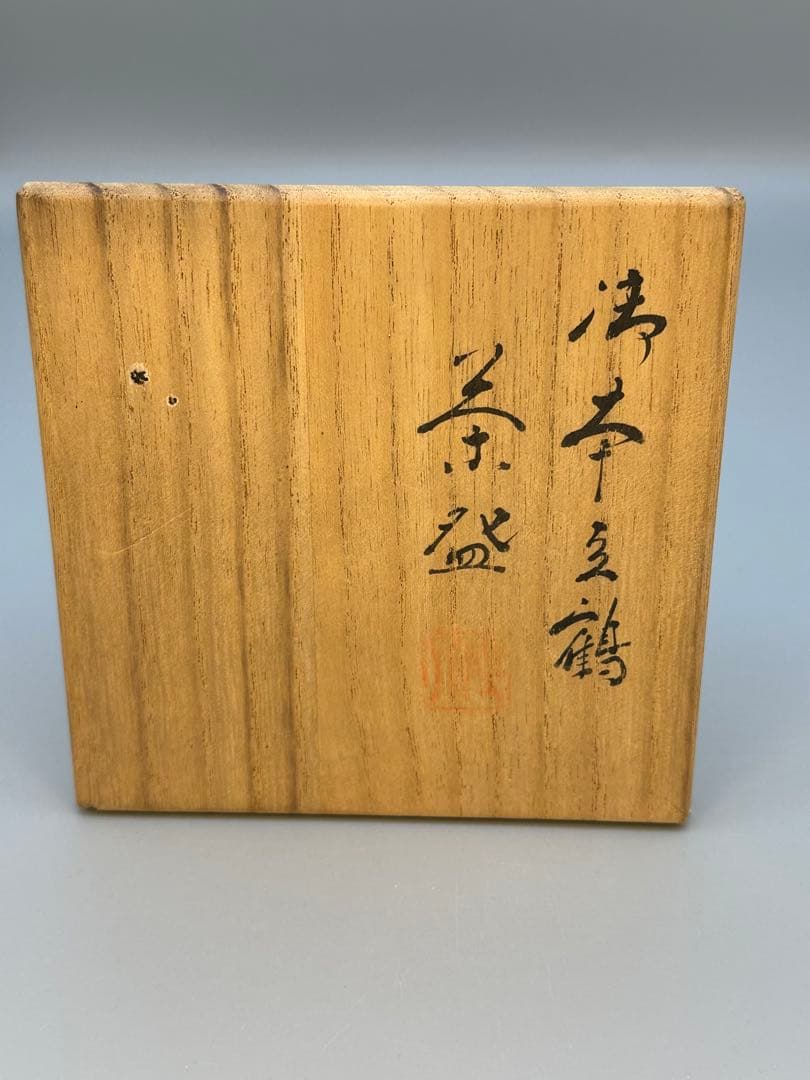 御本立鶴
茶盌